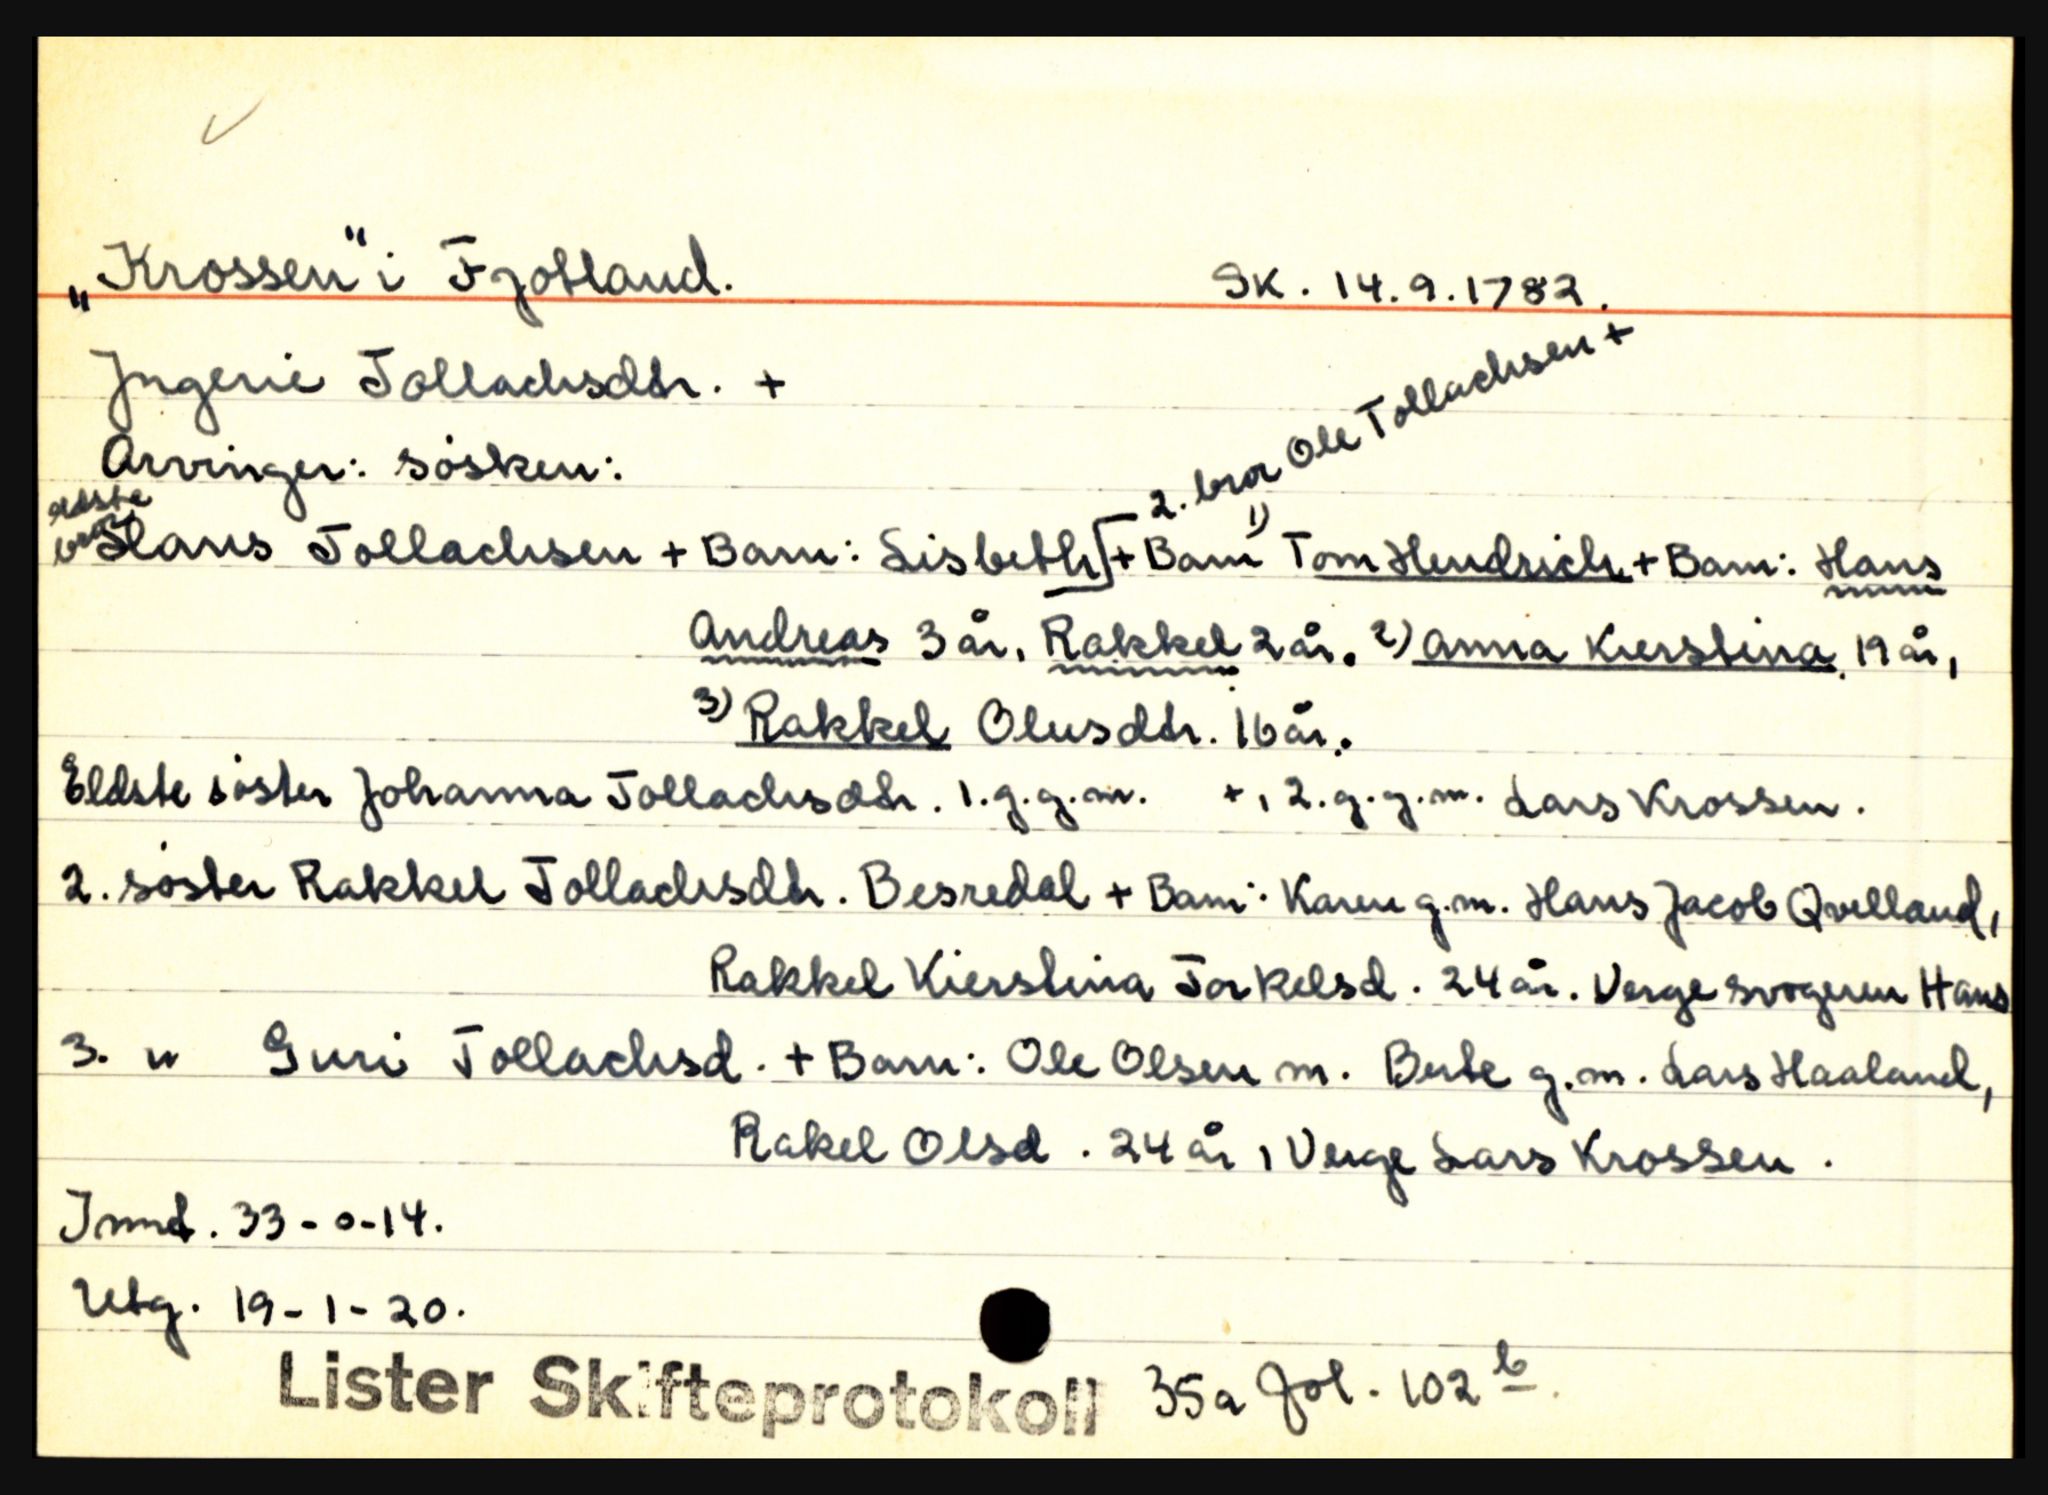 „Krossen" i Fjotland. SK. 14.9.1782.
Jngerie Tollachsdtr. +
Arvinger: søsken:
eldste bror Hans Tollachsen + Barn: Lisbeth [ 2. bror Ole Tollachsen + + Barn 1) Tom Hendrich + Barn: Hans
Andreas 3 år, Rakkel 2 år. 2) Anna Kierstina. 19 år,
3) Rakkel Olusdtr. 16 år.
Eldste søster Johanna Tollachsdtr. 1.g.g.m. +, 2.g.g.m. Lars Krossen.
2. søster Rakkel Tollachsdtr. Besredal + Barn: Karen g.m. Hans Jacob Qvelland,
Rakkel Kierstina Torkelsd. 24 år. Verge svogeren Hans
3. " Guri Tollachsd. + Barn: Ole Olsen m. Berte g.m. Lars Haaland,
Rakel Olsd. 24 år, Verge Lars Krossen.
Innt. 33-0-14.
Utg. 19-1-20.
Lister Skifteprotokoll 35a fol. 102 b.